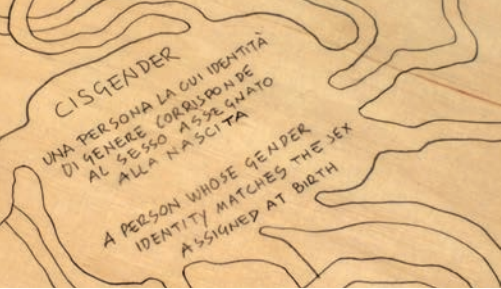 CISGENDER
UNA PERSONA LA CUI IDENTITÀ
DI GENERE CORRISPONDE
AL SESSO ASSEGNATO
ALLA NASCITA
A PERSON WHOSE GENDER
IDENTITY MATCHES THE SEX
ASSIGNED AT BIRTH